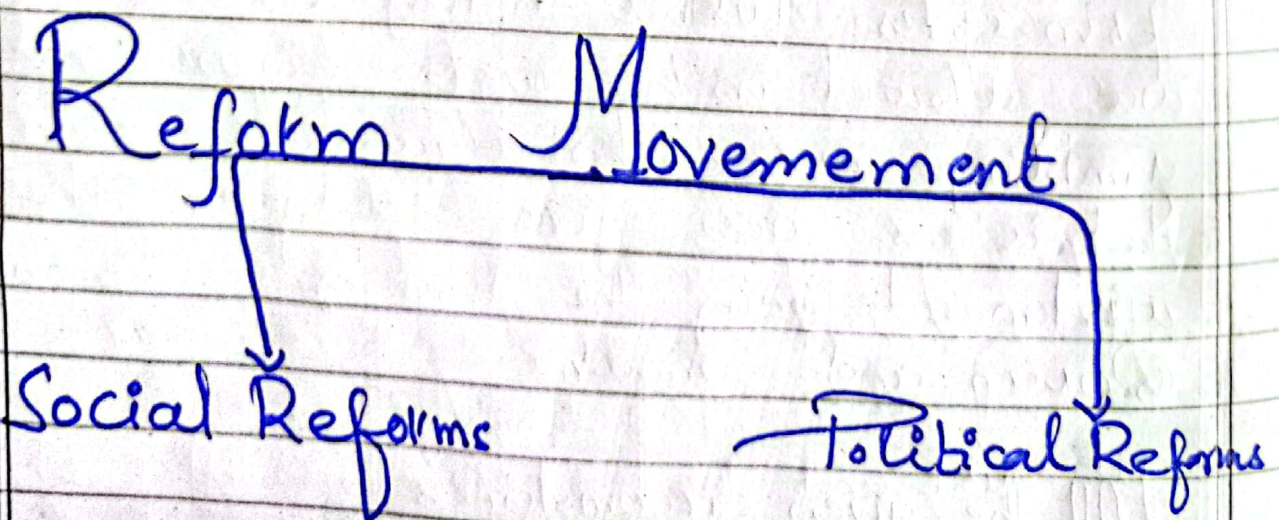 Reform Movemement
Social Reforms Political Reforms